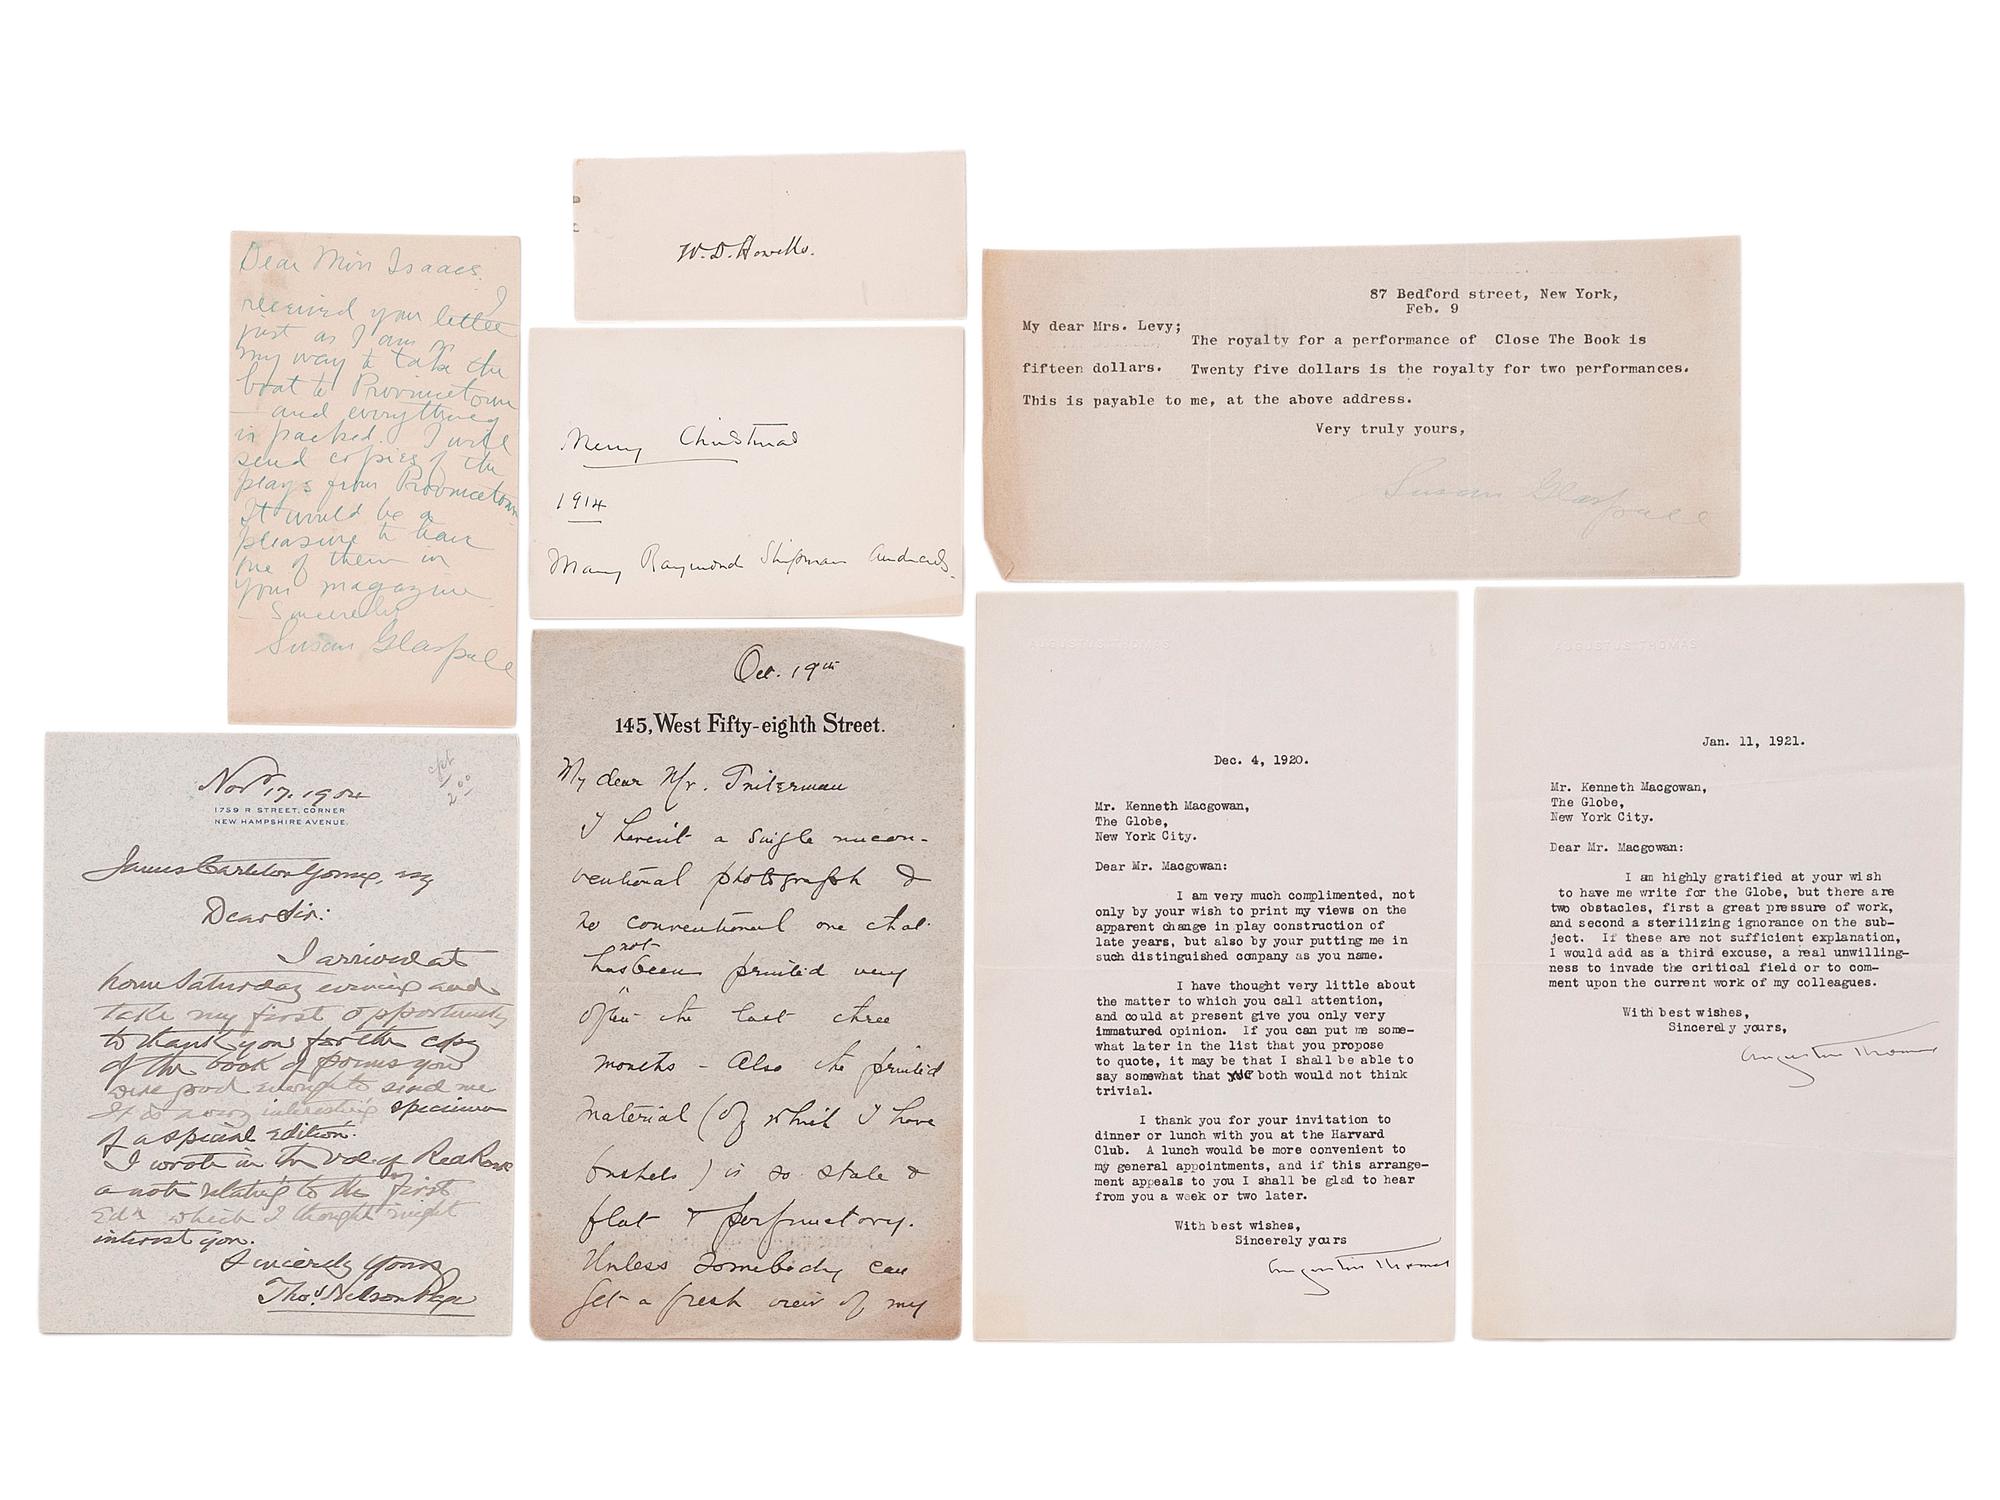 W. D. Howells.
Dear Miss Isaacs.
I
received your letter
just as I am on
my way to take the
boat to Provincetown
— and everything
is packed. I will
send copies of the
plays from Provincetown.
It would be a
pleasure to have
one of them in
your magazine.
— Sincerely
Susan Glaspell
Merry Christmas
1914
Mary Raymond Shipman Andrews.
87 Bedford street, New York,
Feb. 9
My dear Mrs. Levy;
The royalty for a performance of Close The Book is
fifteen dollars. Twenty five dollars is the royalty for two performances.
This is payable to me, at the above address.
Very truly yours,
Susan Glaspell
Nov 17. 1904
1759 R STREET, CORNER
NEW HAMPSHIRE AVENUE.
James Carleton Young,
Dear Sir:
I arrived at
home Saturday evening and
take my first opportunity
to thank you for the copy
of the book of poems you
were good enough to send me
It is a very interesting specimen
of a special edition.
I wrote in the vol. of Red Rock
a note relating to the first
Edn which I thought might
interest you.
Sincerely yours
Thos. Nelson Page
Oct. 19th
145, West Fifty-eighth Street.
My dear Mr.
I haven't a single uncon-
ventional photograph &
no conventional one that
not
has been printed very
often the last three
months - Also the printed
material (of which I have
bushels) is so stale &
flat & perfunctory.
Unless somebody can
get a fresh view of my
AUGUSTUS THOMAS
Dec. 4, 1920.
Mr. Kenneth Macgowan,
The Globe,
New York City.
Dear Mr. Macgowan:
I am very much complimented, not
only by your wish to print my views on the
apparent change in play construction of
late years, but also by your putting me in
such distinguished company as you name.
I have thought very little about
the matter to which you call attention,
and could at present give you only very
immatured opinion. If you can put me some-
what later in the list that you propose
to quote, it may be that I shall be able to
say somewhat that both would not think
trivial.
I thank you for your invitation to
dinner or lunch with you at the Harvard
Club. A lunch would be more convenient to
my general appointments, and if this arrange-
ment appeals to you I shall be glad to hear
from you a week or two later.
With best wishes,
Sincerely yours
Augustus Thomas
AUGUSTUS THOMAS
Jan. 11, 1921.
Mr. Kenneth Macgowan,
The Globe,
New York City.
Dear Mr. Macgowan:
I am highly gratified at your wish
to have me write for the Globe, but there are
two obstacles, first a great pressure of work,
and second a sterilizing ignorance on the sub-
ject. If these are not sufficient explanation,
I would add as a third excuse, a real unwilling-
ness to invade the critical field or to com-
ment upon the current work of my colleagues.
With best wishes,
Sincerely yours,
Augustus Thomas